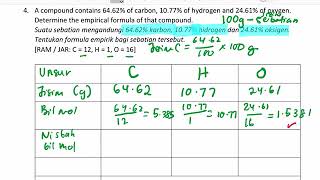 4. A compound contains 64.62% of carbon, 10.77% of hydrogen and 24.61% of oxygen.
Determine the empirical formula of that compound.
100g - sebatian
Suatu sebatian mengandungi 64.62% karbon, 10.77% hidrogen dan 24.61% oksigen.
Tentukan formula empirik bagi sebatian tersebut.
[RAM / JAR: C = 12, H = 1, O = 16]
Jisim C = 64.62/100 × 100 g
Unsur C H O
Jisim (g) 64.62 10.77 24.61
Bil mol 64.62/12 = 5.385 10.77/1 = 10.77 24.61/16 = 1.5381
Nisbah
bil mol